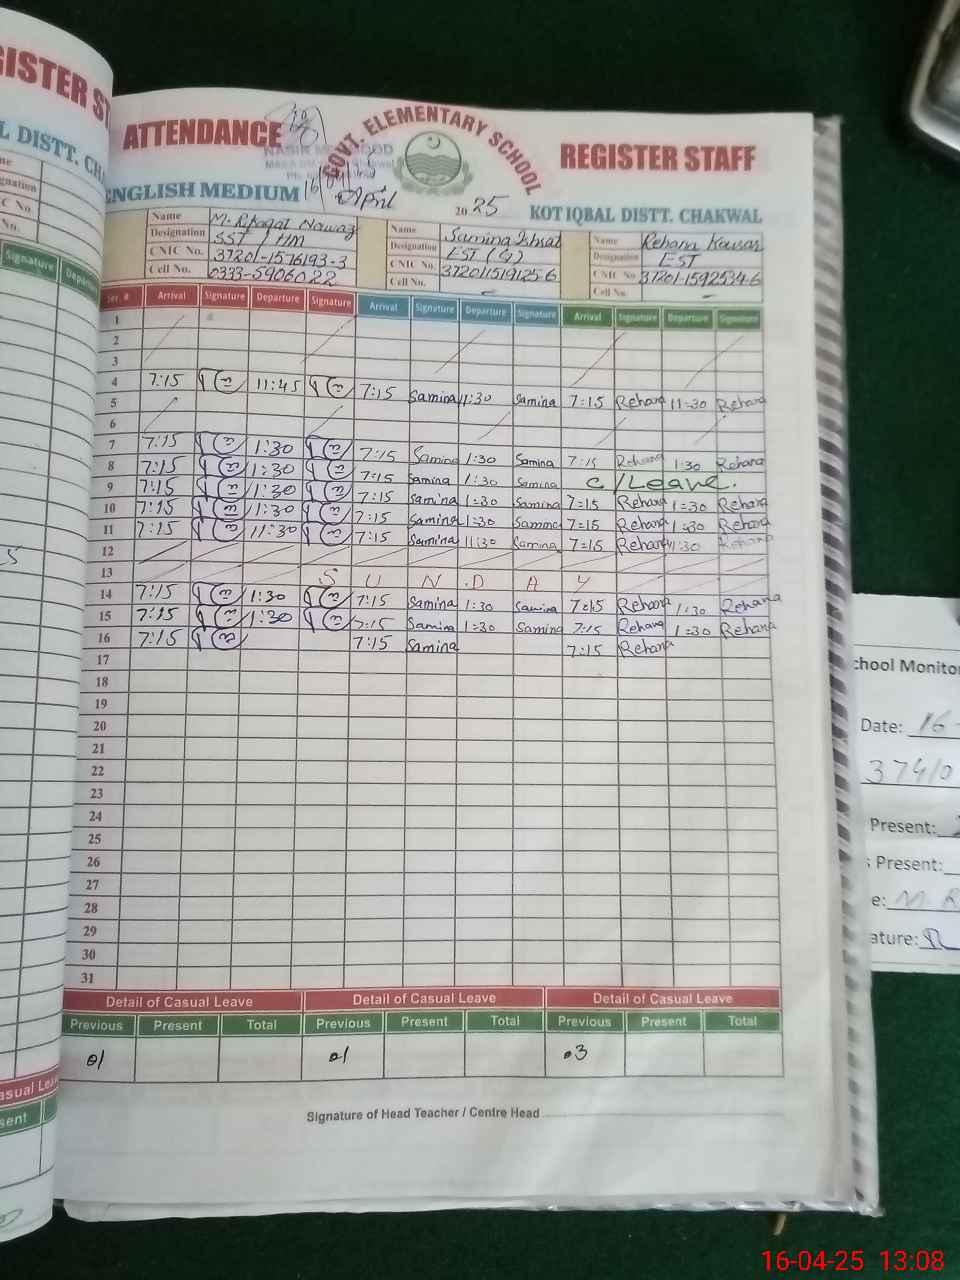 GISTER ST
L DISTT. CHA
ATTENDANCE
GOVT. ELEMENTARY SCHOOL
REGISTER STAFF
ENGLISH MEDIUM
April
2025
KOT IQBAL DISTT. CHAKWAL
Name M. Rfaqat Nawaz
Designation SST / HM
CNIC No. 37201-1576193-3
Cell No. 0333-5906022
Name Samina Ishrat
Designation EST (G)
CNIC No. 372011519125-6
Cell No.
Name Rehana Kausar
Designation EST
CNIC No 37201-1592534-6
Cell No.
Ser. # Arrival Signature Departure Signature Arrival Signature Departure Signature Arrival Signature Departure Signature
1
2
3
4 7:15 11:45 7:15 Samina 11:30 Samina 7:15 Rehana 11-30 Rehana
5
6
7 7:15 1:30 7:15 Samina 1:30 Samina 7:15 Rehana 1:30 Rehana
8 7:15 1:30 7:15 Samina 1:30 Samina C/Leave.
9 7:15 1:30 7:15 Samina 1=30 Samina 7=15 Rehana 1=30 Rehana
10 7:15 1:30 7:15 Samina 1=30 Samina 7=15 Rehana 1=30 Rehana
11 7:15 11:30 7:15 Samina 11:30 Samina 7=15 Rehana 11:30 Rehana
12
13 S U N D A Y
14 7:15 1:30 7:15 Samina 1:30 Samina 7:15 Rehana 1:30 Rehana
15 7:15 1:30 7:15 Samina 1=30 Samina 7:15 Rehana 1=30 Rehana
16 7:15 7:15 Samina 7:15 Rehana
17
18
19
20
21
22
23
24
25
26
27
28
29
30
31
Detail of Casual Leave Detail of Casual Leave Detail of Casual Leave
Previous Present Total Previous Present Total Previous Present Total
01 01 03
Signature of Head Teacher / Centre Head
Signature Departu
asual Leave
sent
chool Monitor
Date: 16-
37410
Present:
s Present:
e: M. R
ature:
16-04-25 13:08